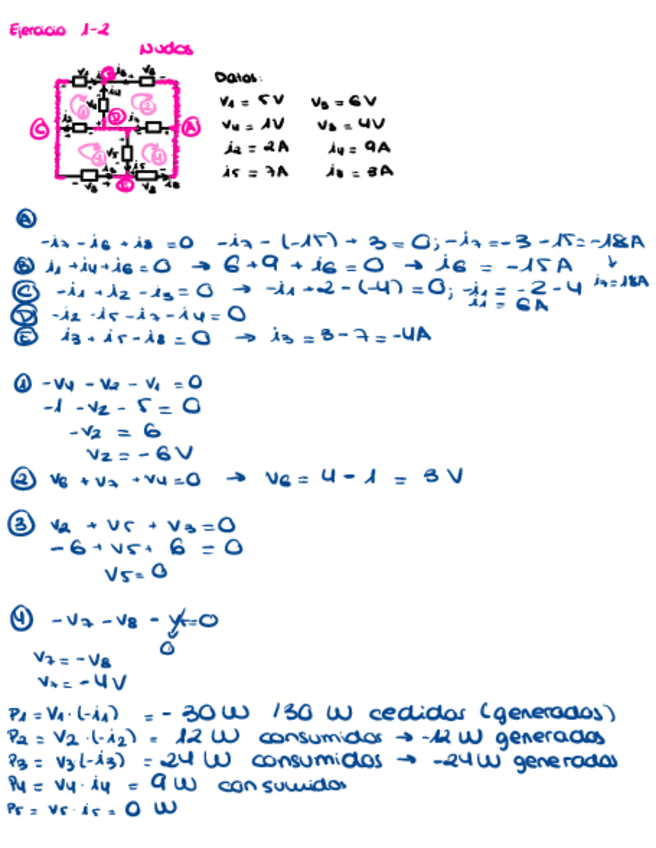 Ejercicio 1-2
Nudos
Datos:
V1 = 5V V3 = 6V
V4 = 1V V8 = 4V
i2 = 2A i4 = 9A
i5 = 7A i8 = 3A
A
-i7 - i6 + i8 = 0 -i7 - (-15) + 3 = 0; -i7 = -3 - 15 = -18A
↓
i7 = 18A
B i1 + i4 + i6 = 0 → 6 + 9 + i6 = 0 → i6 = -15 A
C -i1 + i2 - i3 = 0 → -i1 + 2 - (-4) = 0; -i1 = -2 - 4
i1 = 6A
D -i2 - i5 - i7 - i4 = 0
E i3 + i5 - i8 = 0 → i3 = 3 - 7 = -4A
1 -V4 - V2 - V1 = 0
-1 - V2 - 5 = 0
-V2 = 6
V2 = -6V
2 V6 + V7 + V4 = 0 → V6 = 4 - 1 = 3 V
3 V2 + V5 + V3 = 0
-6 + V5 + 6 = 0
V5 = 0
4 -V7 - V8 - = 0
0
V7 = -V8
V7 = -4V
P1 = V1 · (-i1) = -30 W / 30 W cedidos (generados)
P2 = V2 · (-i2) = 12 W consumidos → -12 W generados
P3 = V3 (-i3) = 24 W consumidos → -24 W generados
P4 = V4 · i4 = 9 W consumidos
P5 = V5 · i5 = 0 W